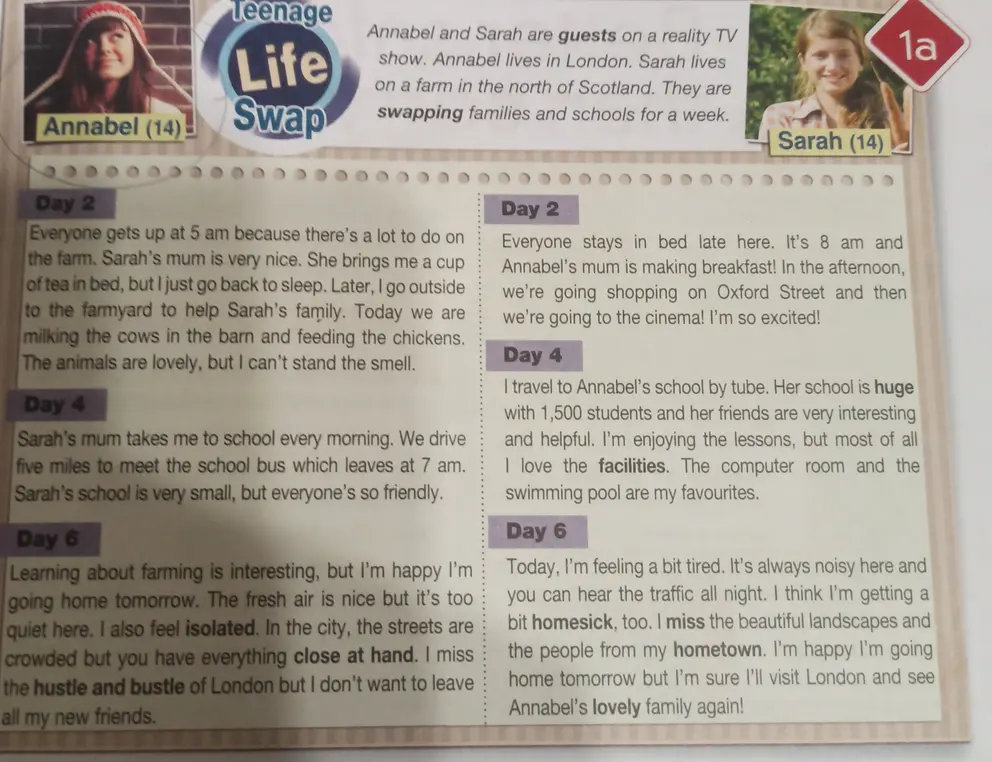 Teenage
Life
Swap
Annabel and Sarah are guests on a reality TV
show. Annabel lives in London. Sarah lives
on a farm in the north of Scotland. They are
swapping families and schools for a week.
1a
Annabel (14)
Sarah (14)
Day 2
Everyone gets up at 5 am because there's a lot to do on
the farm. Sarah's mum is very nice. She brings me a cup
of tea in bed, but I just go back to sleep. Later, I go outside
to the farmyard to help Sarah's family. Today we are
milking the cows in the barn and feeding the chickens.
The animals are lovely, but I can't stand the smell.
Day 4
Sarah's mum takes me to school every morning. We drive
five miles to meet the school bus which leaves at 7 am.
Sarah's school is very small, but everyone's so friendly.
Day 6
Learning about farming is interesting, but I'm happy I'm
going home tomorrow. The fresh air is nice but it's too
quiet here. I also feel isolated. In the city, the streets are
crowded but you have everything close at hand. I miss
the hustle and bustle of London but I don't want to leave
all my new friends.
Day 2
Everyone stays in bed late here. It's 8 am and
Annabel's mum is making breakfast! In the afternoon,
we're going shopping on Oxford Street and then
we're going to the cinema! I'm so excited!
Day 4
I travel to Annabel's school by tube. Her school is huge
with 1,500 students and her friends are very interesting
and helpful. I'm enjoying the lessons, but most of all
I love the facilities. The computer room and the
swimming pool are my favourites.
Day 6
Today, I'm feeling a bit tired. It's always noisy here and
you can hear the traffic all night. I think I'm getting a
bit homesick, too. I miss the beautiful landscapes and
the people from my hometown. I'm happy I'm going
home tomorrow but I'm sure I'll visit London and see
Annabel's lovely family again!